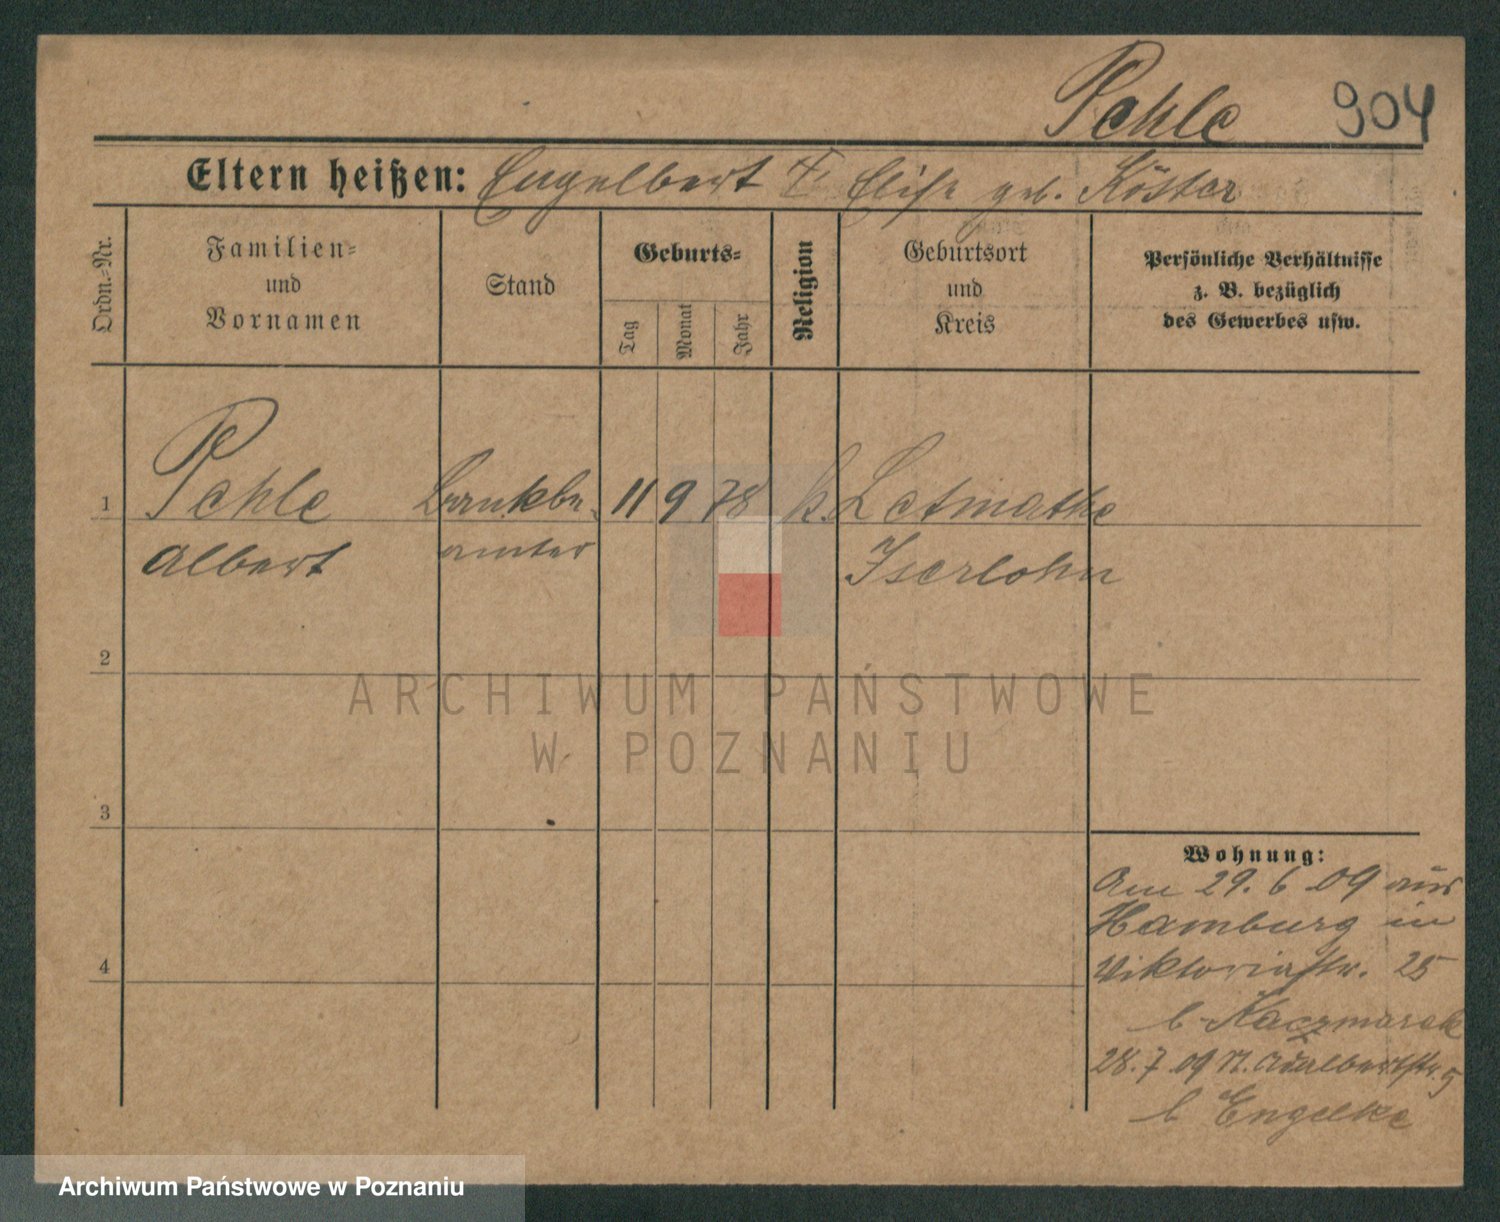 Pehle 904
Eltern heißen: Engelbert † Elise geb. Köster
Ordn.-Nr.
Familien-
und
Vornamen
Stand
Geburts-
Tag
Monat
Jahr
Religion
Geburtsort
und
Kreis
Persönliche Verhältnisse
z. B. bezüglich
des Gewerbes usw.
1 Pehle Bankbe- 11 9 78 k. Letmathe
Albert amter Iserlohn
2
ARCHIWUM PAŃSTWOWE
W POZNANIU
3
Wohnung:
Am 29. 6 09 aus
Hamburg in
4 Viktoriastr. 25
b. Kaczmarek
28. 7 09 N. Adalbertstr. 5
b Engelke
Archiwum Państwowe w Poznaniu